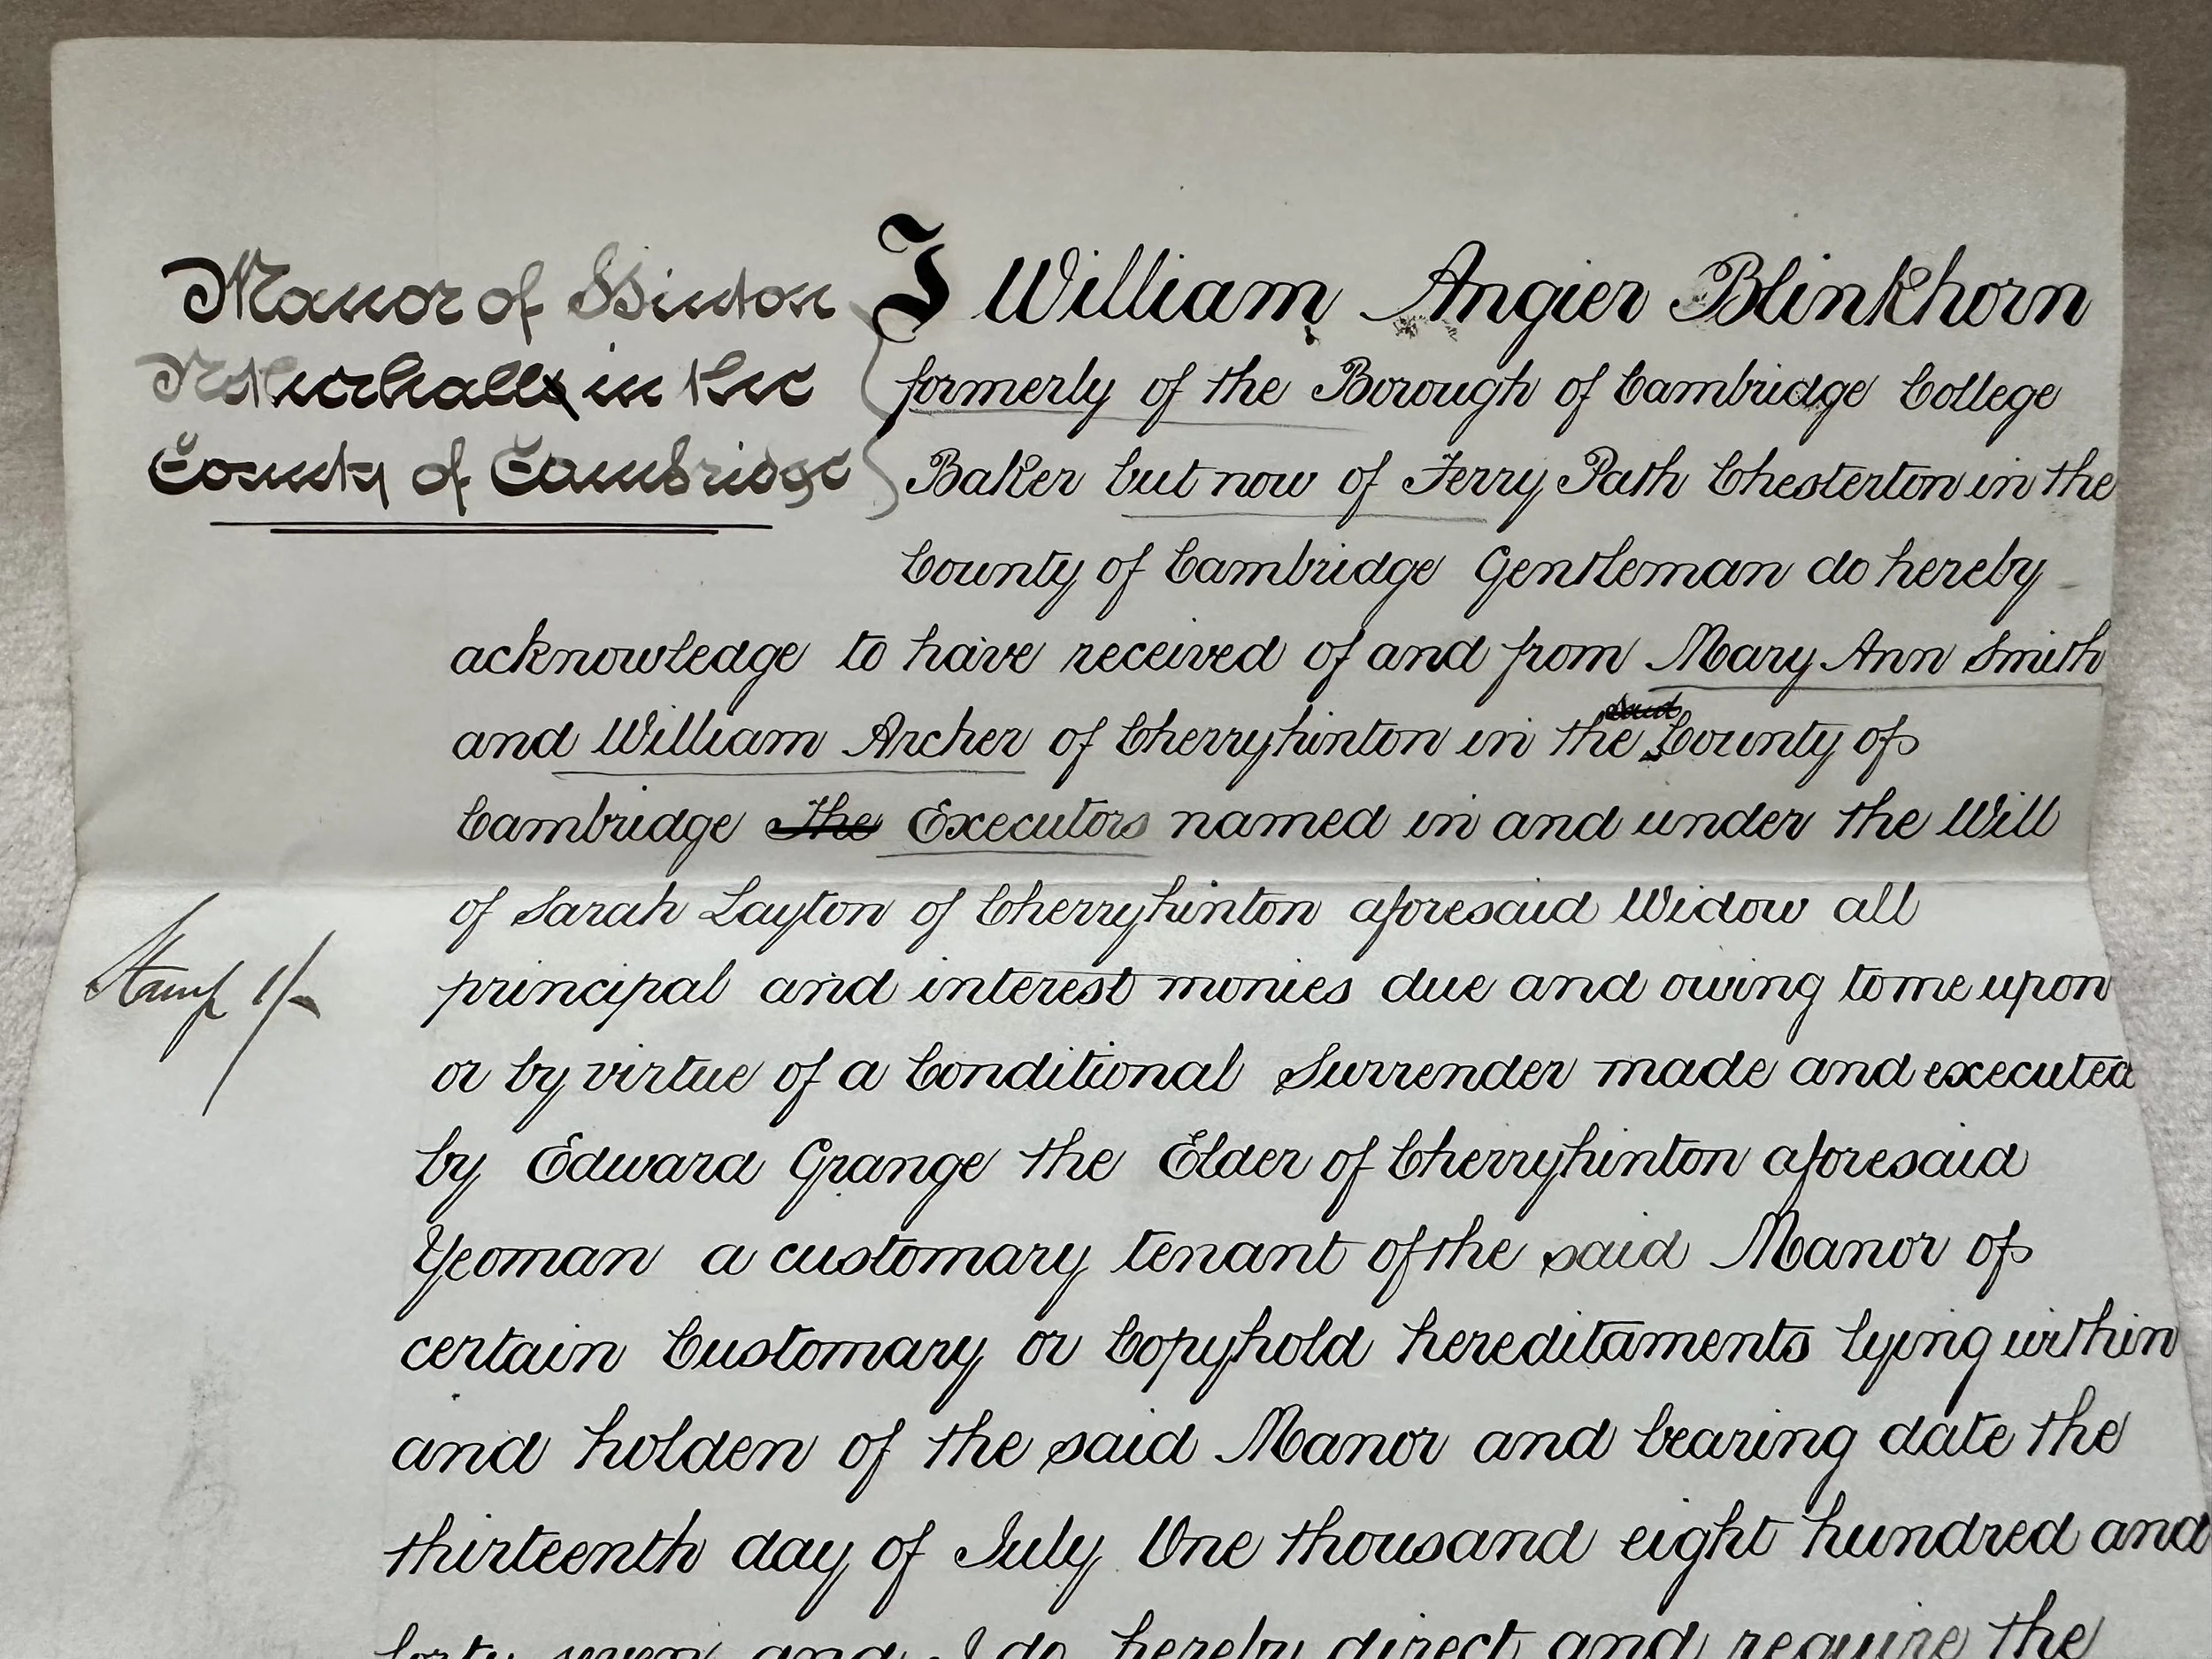 Manor of Hinton
Netherhall in the
County of Cambridge
I William Angier Blinkhorn
formerly of the Borough of Cambridge College
Baker but now of Ferry Path Chesterton in the
County of Cambridge Gentleman do hereby
acknowledge to have received of and from Mary Ann Smith
said
and William Archer of Cherryhinton in the County of
Cambridge The Executors named in and under the Will
of Sarah Layton of Cherryhinton aforesaid Widow all
Stamp 1/-
principal and interest monies due and owing to me upon
or by virtue of a Conditional Surrender made and executed
by Edward Grange the Elder of Cherryhinton aforesaid
Yeoman a customary tenant of the said Manor of
certain Customary or Copyhold hereditaments lying within
and holden of the said Manor and bearing date the
thirteenth day of July One thousand eight hundred and
forty seven and I do hereby direct and require the